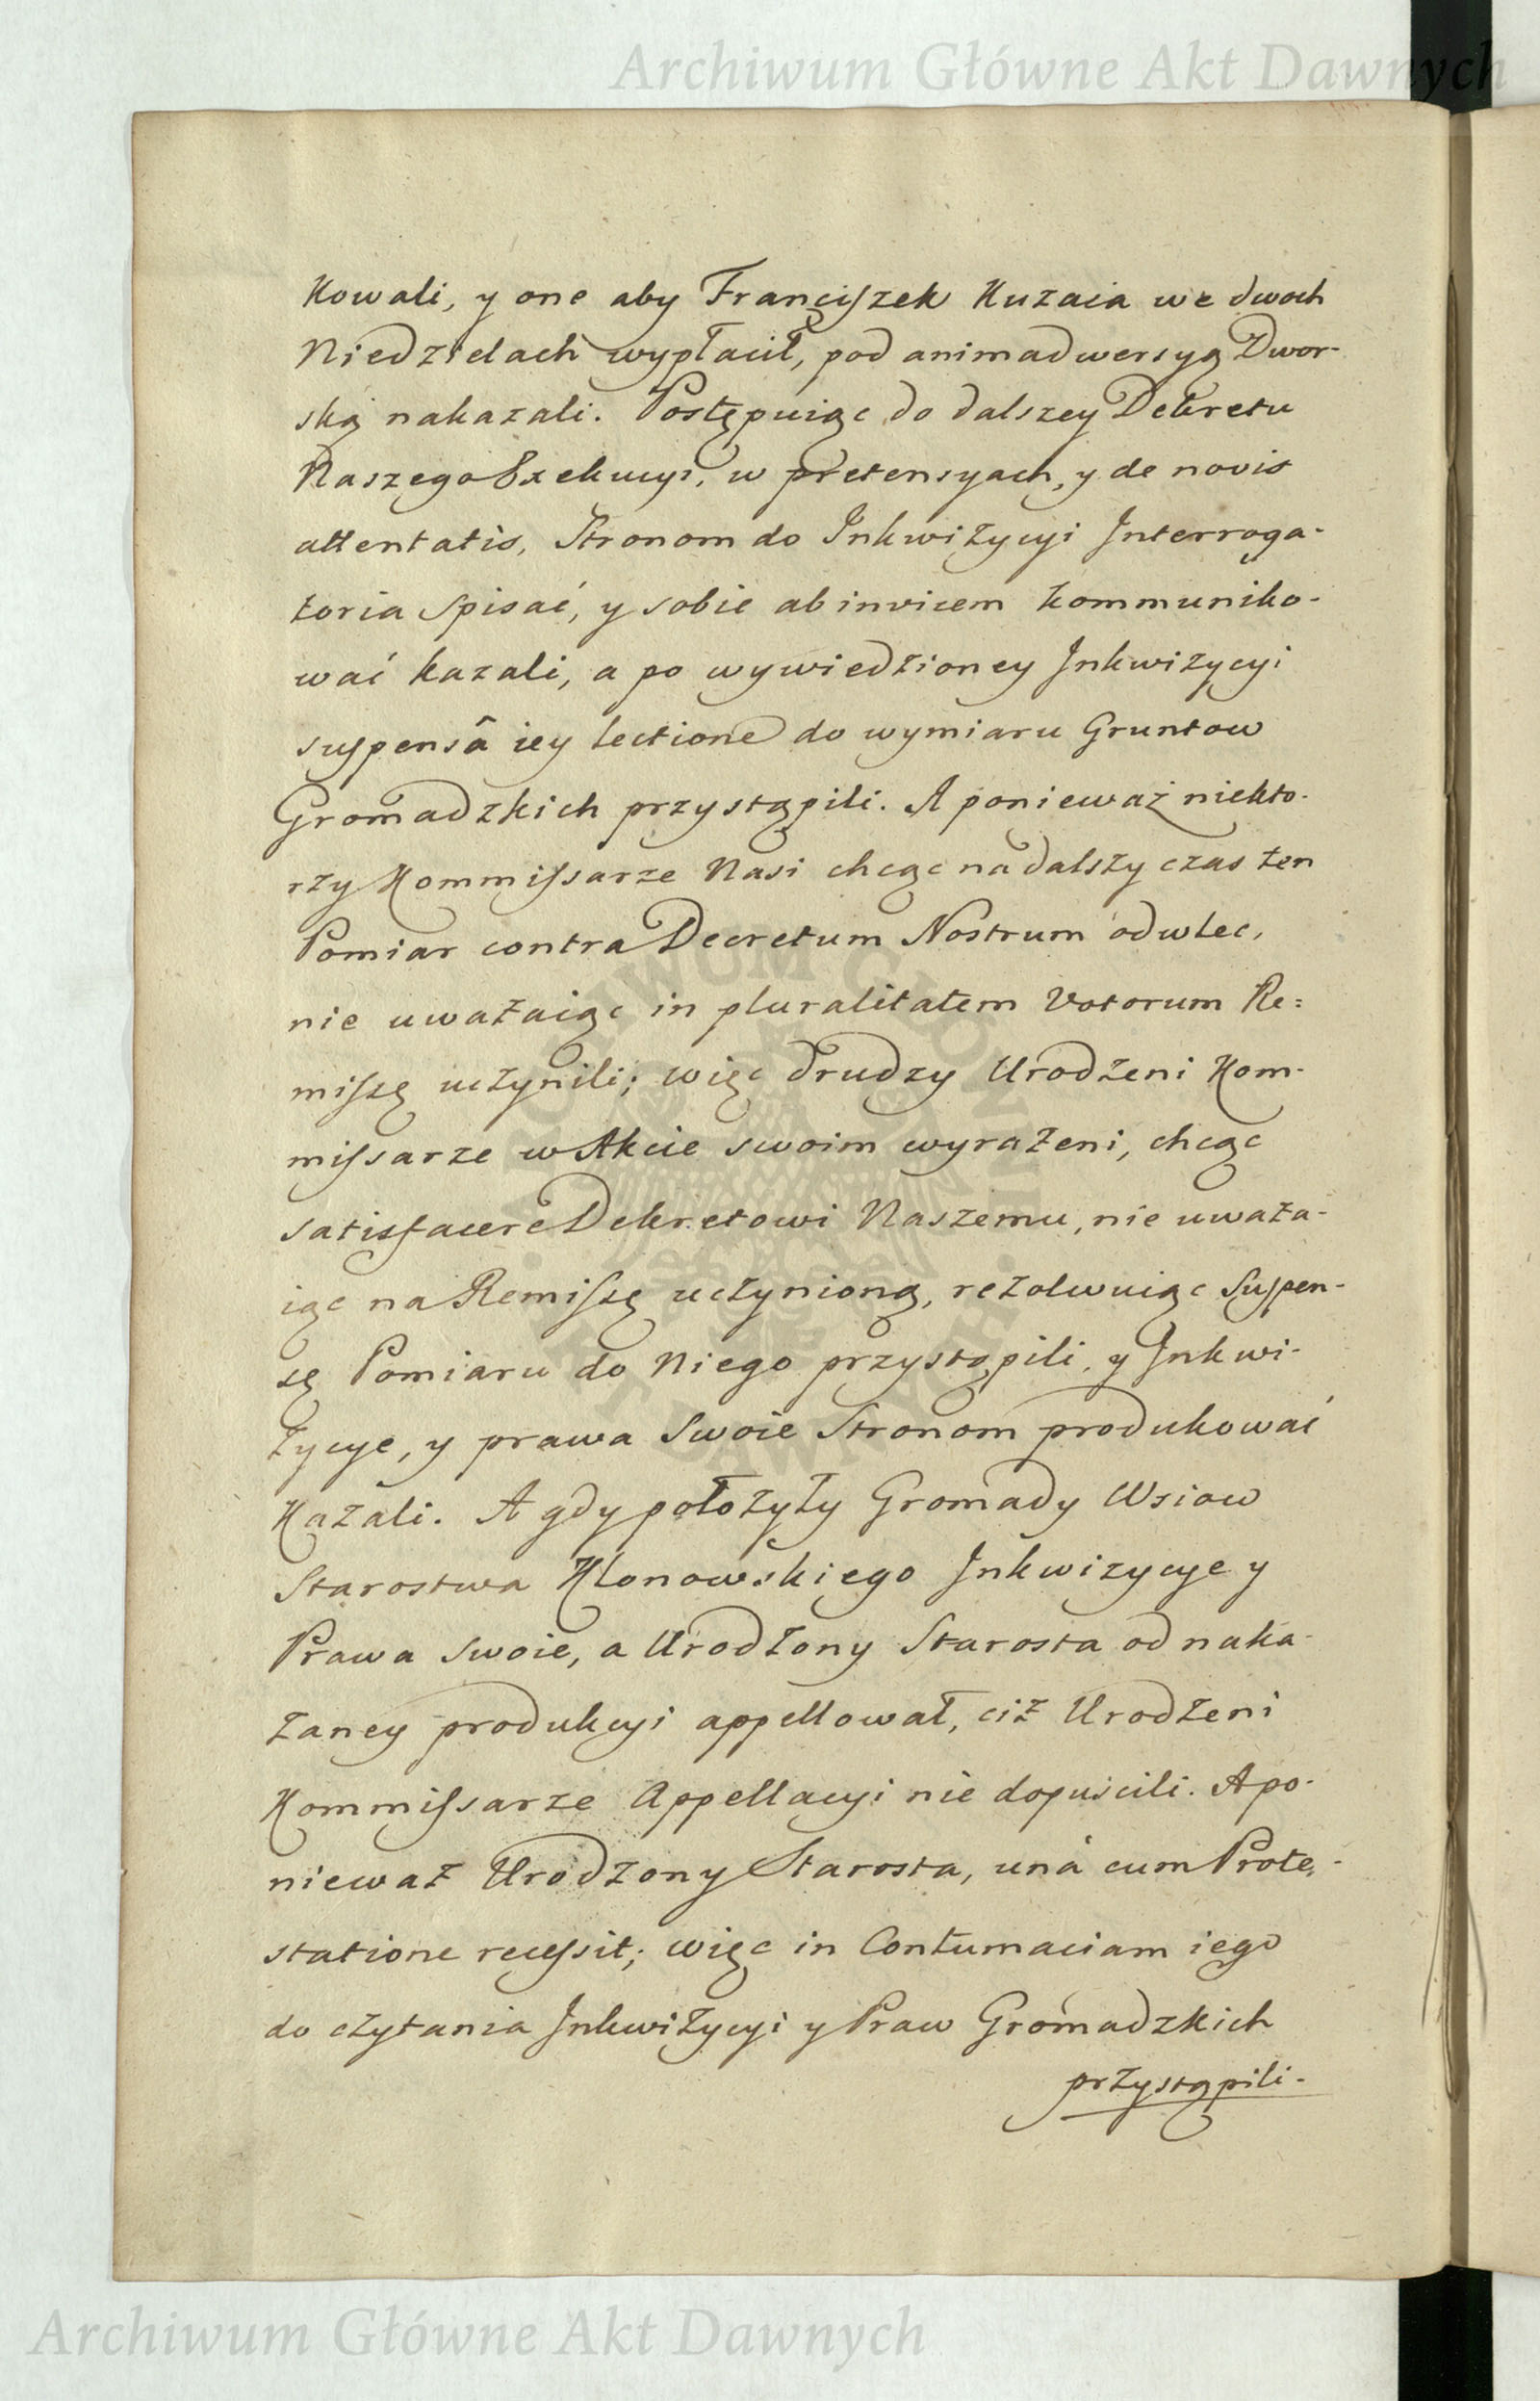 Archiwum Główne Akt Dawnych
kowali, y one aby Franciszek Kuzaia we dwoch
Niedzielach wypłacił, pod animadwersyą Dwor-
ską nakazali. Postępuiąc do dalszey Dekretu
Naszego Exekucyi, w pretensyach, y de novis
attentatis, Stronom do Inkwizycyi Interroga-
toria spisać, y sobie ab invicem kommuniko-
wać kazali, a po wywiedzioney Inkwizycyi
suspensâ iey lectione do wymiaru Gruntow
Gromadzkich przystąpili. A ponieważ niekto-
rzy Kommissarze Nasi chcąc na dalszy czas ten
Pomiar contra Decretum Nostrum odwlec,
nie uważaiąc in pluralitatem Votorum Re=
missę uczynili; więc drudzy Urodzeni Kom-
missarze w Akcie swoim wyrażeni, chcąc
satisfacere Dekretowi Naszemu, nie uważa-
iąc na Remissę uczynioną, rezolwuiąc Suspen-
sę Pomiaru do Niego przystąpili, y Inkwi-
zycye, y prawa Swoie Stronom produkować
Kazali. A gdy połozyły Gromady Wsiow
Starostwa Klonowskiego Inkwizycye y
Prawa Swoie, a Urodzony Starosta od naka-
zaney produkcyi appellował, ciż Urodzeni
Kommissarze Appellacyi nie dopuścili. A po-
nieważ Urodzony Starosta, unà cum Prote-
statione recessit; więc in Contumaciam iego
do czytania Inkwizycyi y Praw Gromadzkich
przystąpili-
ARCHIWUM GŁÓWNE AKT DAWNYCH
Archiwum Główne Akt Dawnych